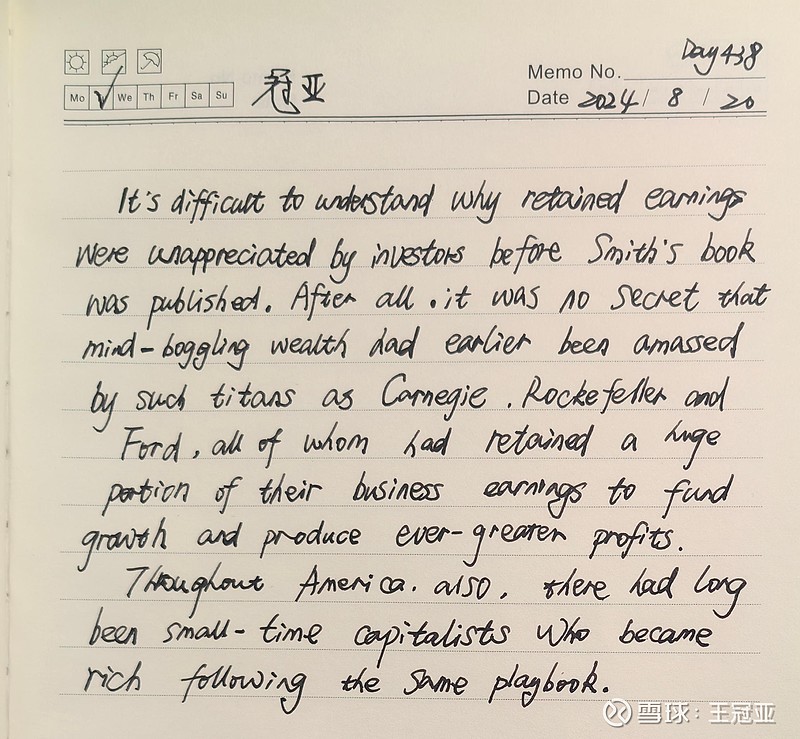 Day 438
Memo No.
Mo We Th Fr Sa Su
冠亚
Date 2024 / 8 / 20
It's difficult to understand why retained earnings
were unappreciated by investors before Smith's book
was published. After all, it was no secret that
mind-boggling wealth had earlier been amassed
by such titans as Carnegie, Rockefeller and
Ford, all of whom had retained a huge
portion of their business earnings to fund
growth and produce ever-greater profits.
Throughout America, also, there had long
been small-time capitalists who became
rich following the same playbook.
雪球：王冠亚